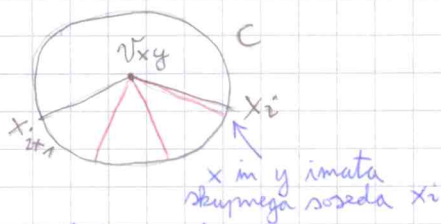 C
Vxy
xi
xi+1
x in y imata
skupnega soseda xi